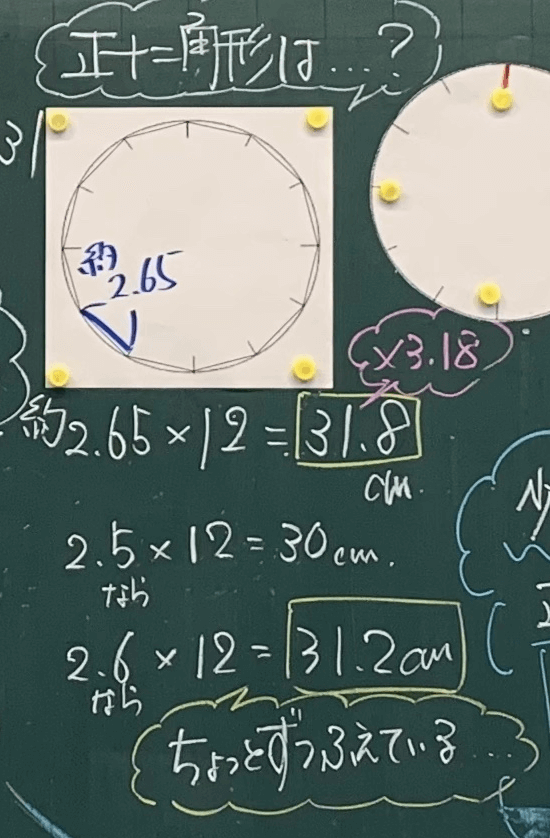 正十二角形は…?
約
2.65
×3.18
約2.65×12=31.8
cm.
2.5×12=30cm.
なら
2.6×12=31.2cm
なら
ちょっとずつふえている…